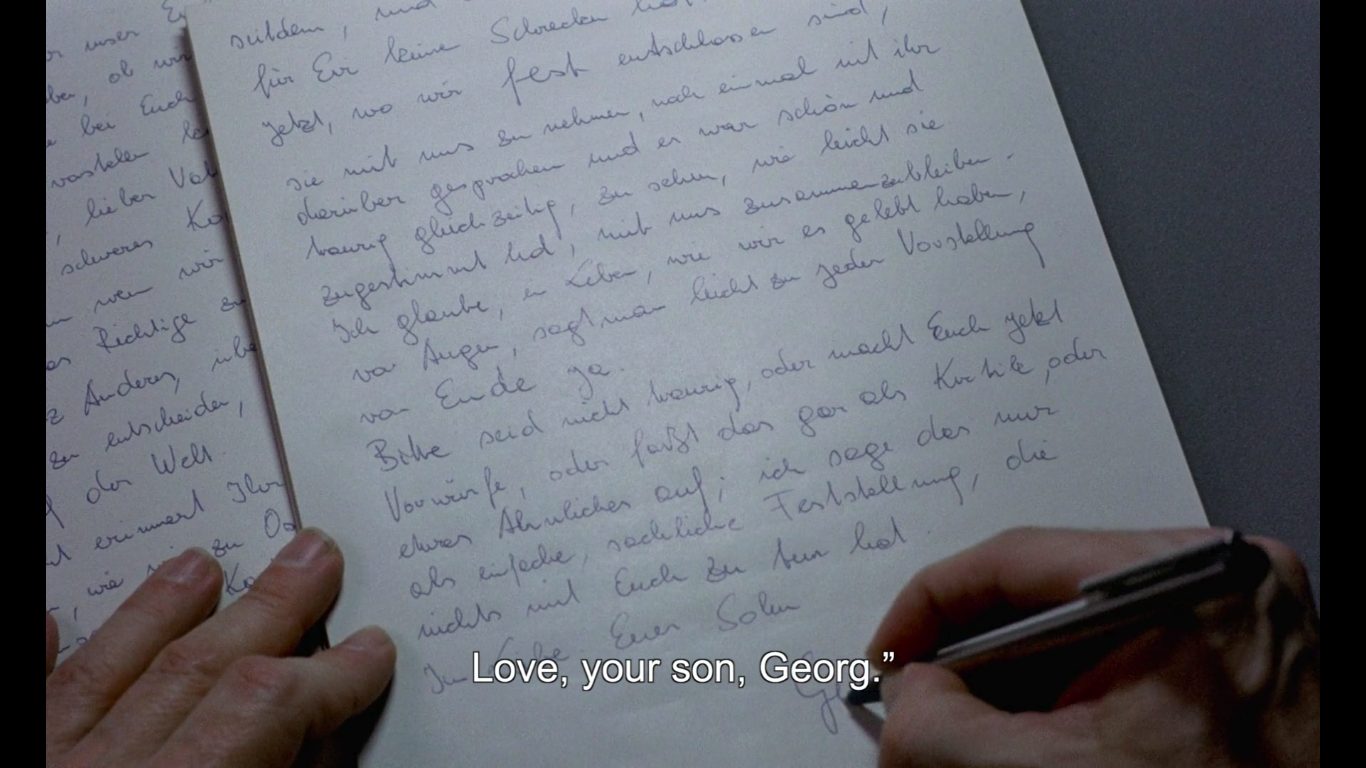 unser
ob wir
bei Euch
lieber Vat
schweres
wenn wir
Richtige zu
Anderes,
zu entscheiden,
der Welt.
erinnert Ihr
zu
seitdem, und
für Evi keine Schrecken hat
jetzt, wo wir fest entschlossen sind,
sie mit uns zu nehmen, noch einmal mit ihr
darüber gesprochen und es war schön und
traurig gleichzeitig, zu sehen, wie leicht sie
zugestimmt hat, mit uns zusammenzubleiben.
Ich glaube, ein Leben, wie wir es gelebt haben,
vor Augen, sagt man leicht zu jeder Vorstellung
von Ende ja.
Bitte seid nicht traurig, oder macht Euch jetzt
Vorwürfe, oder faßt das gar als Kritik, oder
etwas Ähnliches auf; ich sage das nur
als einfache, sachliche Feststellung, die
nichts mit Euch zu tun hat.
In Liebe Euer Sohn
Love, your son, Georg.”